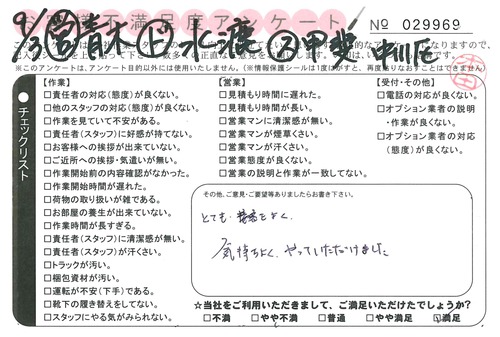 お客様不満足度アンケート
№ 029969
9/3 青木 水渡 甲斐 中川区
※このアンケートは、アンケート目的以外には使用いたしません。(※情報保護シールは1度はがすと、再度貼りなおすことはできません)
●チェックリスト
【作業】
□責任者の対応(態度)が良くない。
□他のスタッフの対応(態度)が良くない。
□作業を見ていて不安がある。
□責任者(スタッフ)に好感が持てない。
□お客様への挨拶が出来ていない。
□ご近所への挨拶・気遣いが無い。
□作業開始前の内容確認がなかった。
□作業開始時間が遅れた。
□荷物の取り扱いが雑である。
□お部屋の養生が出来ていない。
□作業時間が長すぎる。
□責任者(スタッフ)に清潔感が無い。
□責任者(スタッフ)が汗くさい。
□トラックが汚い。
□梱包資材が汚い。
□運転が不安(下手)である。
□靴下の履き替えをしてない。
□スタッフにやる気がみられない。
【営業】
□見積もり時間に遅れた。
□見積もり時間が長い。
□営業マンに清潔感が無い。
□営業マンが煙草くさい。
□営業マンが汗くさい。
□営業態度が良くない。
□営業の説明と作業が一致してない。
【受付・その他】
□電話の対応が良くない。
□オプション業者の説明・作業が良くない。
□オプション業者の対応(態度)が良くない。
その他、ご意見・ご要望等ありましたらお書き下さい。
とても よく、
気持ちよく、やっていただけました
☆当社をご利用いただきまして、ご満足いただけたでしょうか?
□不満 □やや不満 □普通 □やや満足 □満足